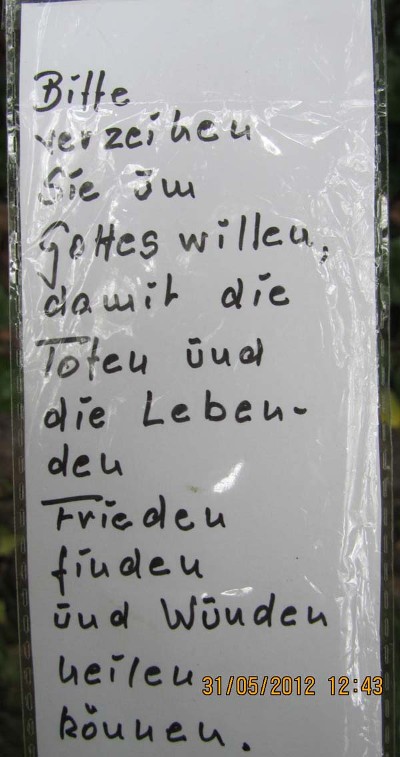 Bitte
verzeihen
Sie um
Gottes willen,
damit die
Toten und
die Leben-
den
Frieden
finden
und Wunden
heilen
können.
31/05/2012 12:43